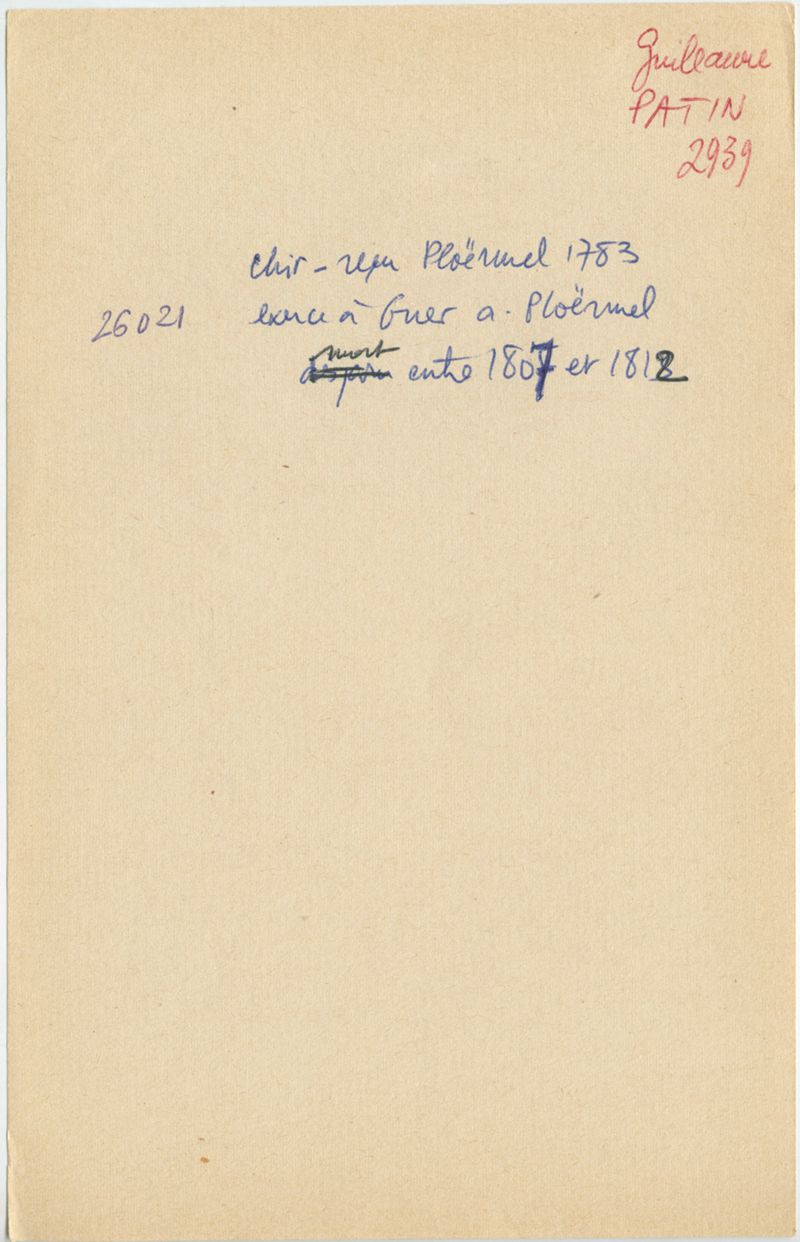 Guillaume
PATIN
2939
chir - reçu Ploërmel 1783
26021 exerce à Guer a. Ploërmel
mort entre 1807 et 1812